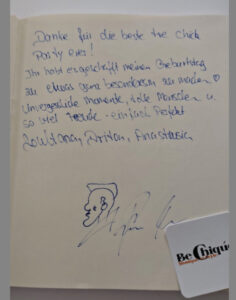 Danke für die beste the chick
Party ever!
Ihr habt es geschafft meinen Geburtstag
zu etwas ganz besonderem zu machen ♡
Unvergessliche Momente, tolle Menschen u.
so viel Freude - einfach Perfekt
Anastasia
Be Chique